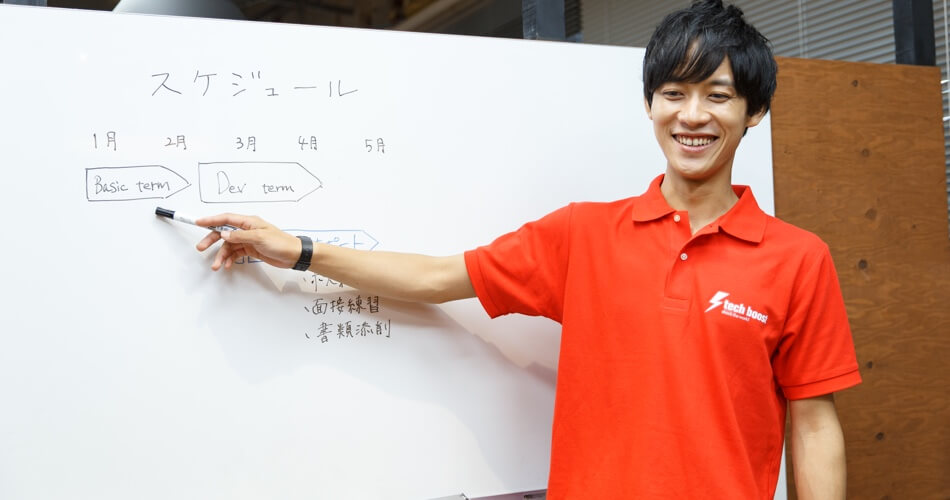 スケジュール
1月 2月 3月 4月 5月
Basic term Dev term
ポート
、面接練習
、書類添削
tech boost